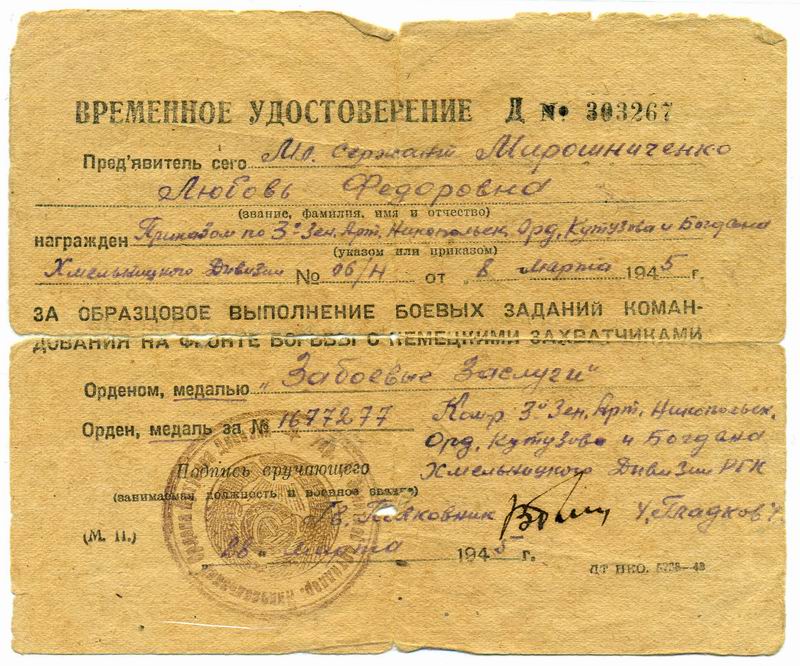 ВРЕМЕННОЕ УДОСТОВЕРЕНИЕ Д № 303267
Пред'явитель сего Мл. сержант Мирошниченко
Любовь Федоровна
(звание, фамилия, имя и отчество)
награжден Приказом по 3й Зен. Арт. Никопольск. Орд. Кутузова и Богдана
(указом или приказом)
Хмельницкого Дивизии № 06/Н от „8 марта 1945 г.
ЗА ОБРАЗЦОВОЕ ВЫПОЛНЕНИЕ БОЕВЫХ ЗАДАНИЙ КОМАН-
ДОВАНИЯ НА ФРОНТЕ БОРЬБЫ С НЕМЕЦКИМИ ЗАХВАТЧИКАМИ
Орденом, медалью „За боевые Заслуги"
Орден, медаль за № 1677277
Подпись вручающего
(занимаемая должность и военное звание)
Ком-р 3й Зен. Арт. Никопольск.
Орд. Кутузова и Богдана
Хмельницкого Дивизии РГК
Гв. Полковник /Гладков/
(М. П.)
„26" марта 1945 г.
ЛТ НКО.